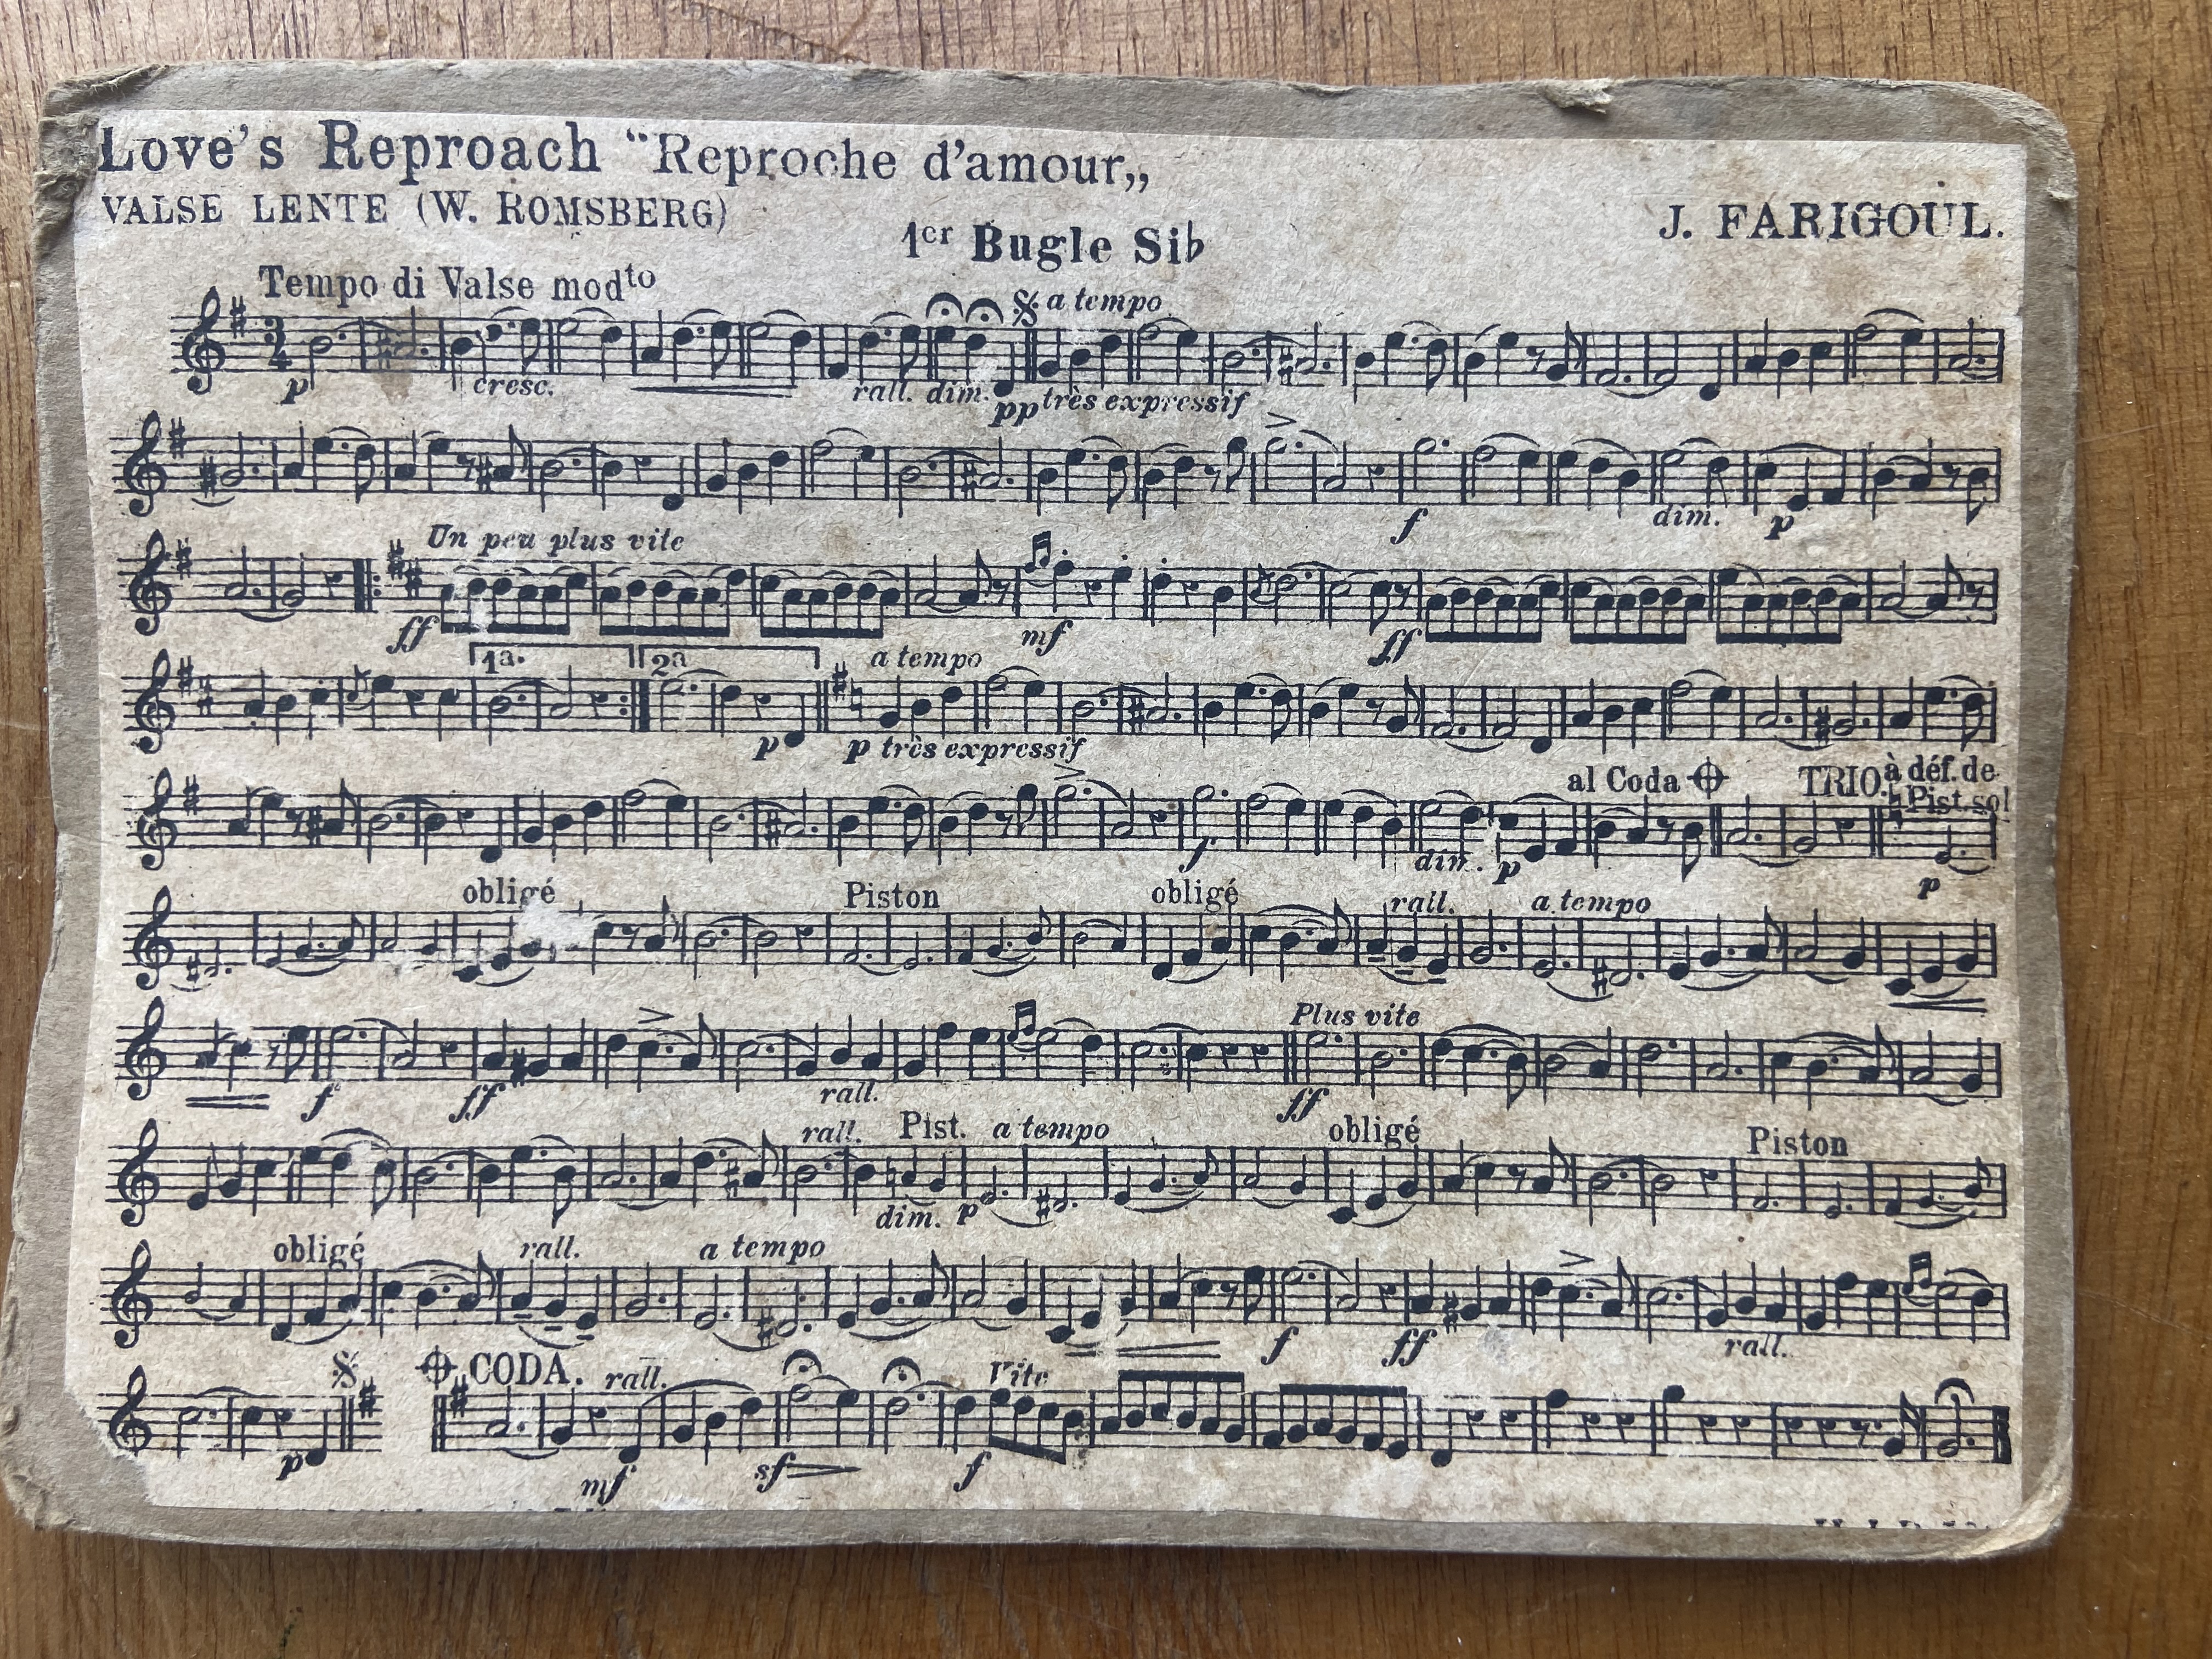 Love's Reproach “Reproche d'amour„
VALSE LENTE (W. ROMSBERG)
J. FARIGOUL.
1er Bugle Si♭
Tempo di Valse modto
a tempo
p cresc. rall. dim. pp très expressif
f dim. p
Un peu plus vite
ff mf ff
1a. 2a a tempo
p p très expressif
al Coda TRIO à déf. de
Pist. sol
f dim. p p
obligé Piston obligé rall. a tempo
Plus vite
f ff rall. ff
rall. Pist. a tempo obligé Piston
dim. p
obligé rall. a tempo
f ff rall.
CODA. rall. Vite
p mf sf f